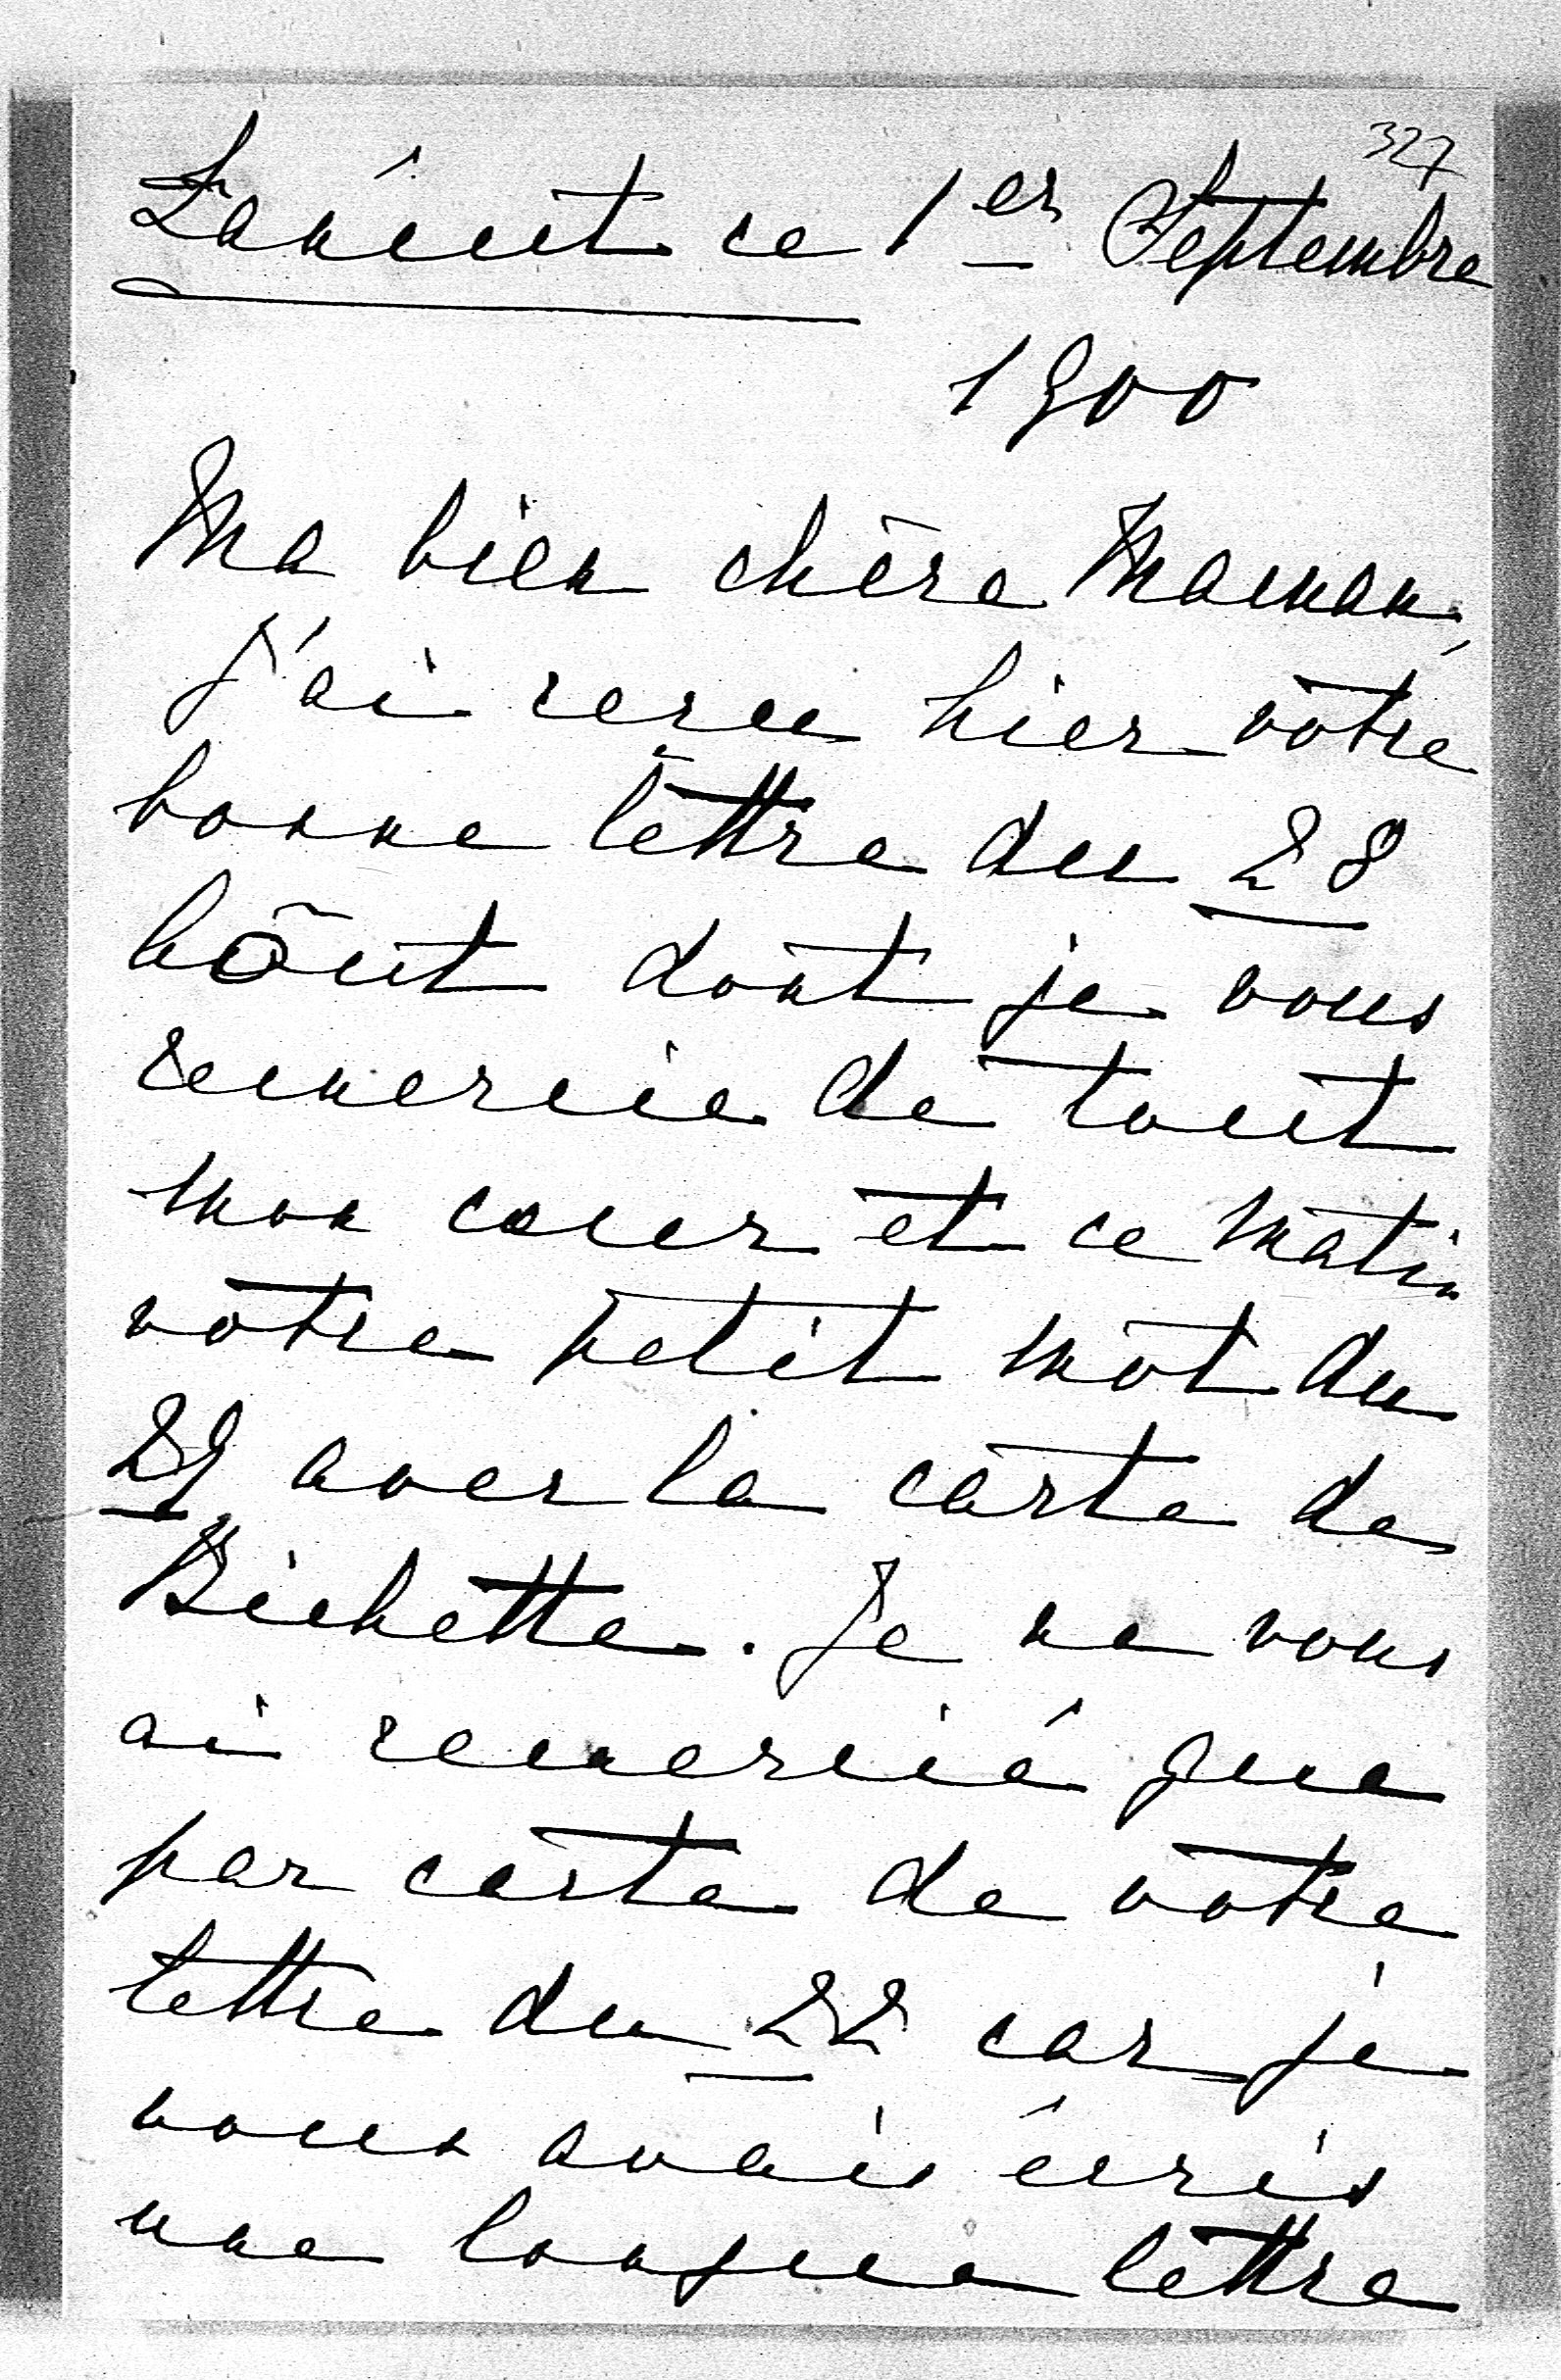 327
Łańcut ce 1er Septembre
1900
Ma bien chère Maman,
J'ai reçu hier votre
bonne lettre du 28
Aôut dont je vous
remercie de tout
mon cœur et ce matin
votre petit mot du
29 avec la carte de
Bichette. Je ne vous
ai remercié que
par carte de votre
lettre du 22 car je
vous avais écris
une longue lettre